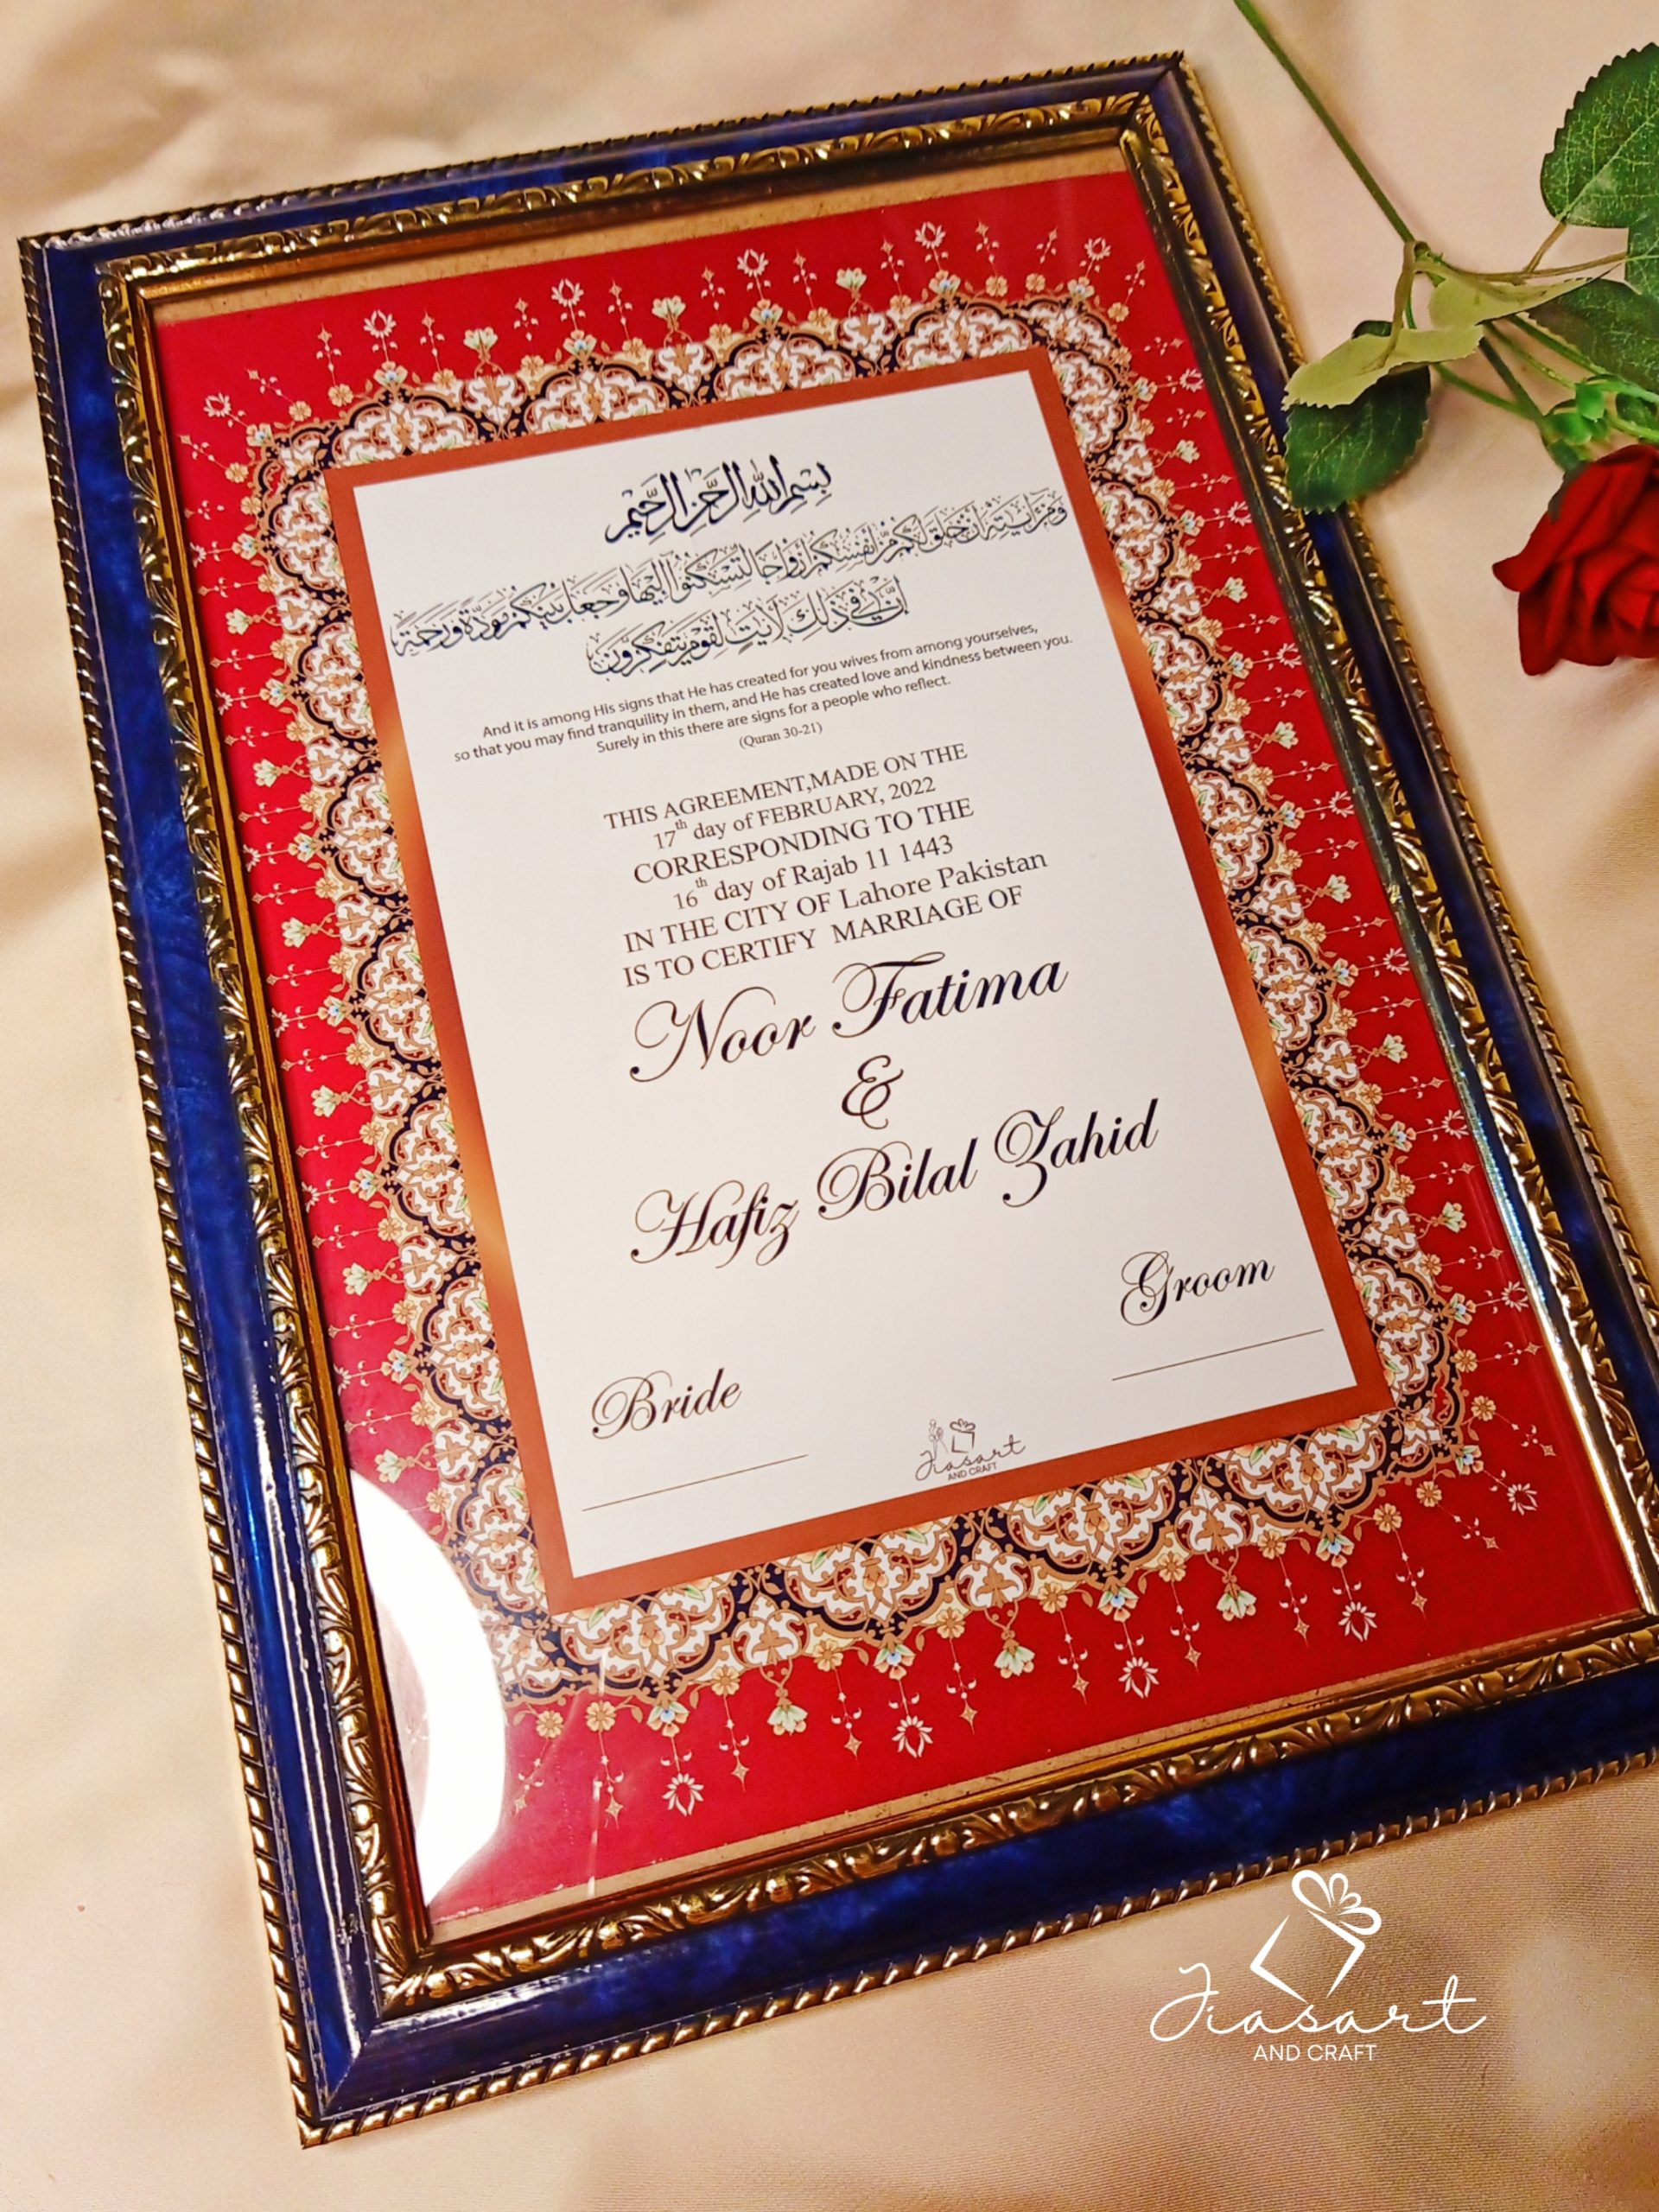 بسم الله الرحمن الرحيم
وَمِنْ اٰيٰتِهٖٓ اَنْ خَلَقَ لَكُمْ مِّنْ اَنْفُسِكُمْ اَزْوَاجًا لِّتَسْكُنُوْٓا اِلَيْهَا وَجَعَلَ بَيْنَكُمْ مَّوَدَّةً وَّرَحْمَةً
اِنَّ فِيْ ذٰلِكَ لَاٰيٰتٍ لِّقَوْمٍ يَّتَفَكَّرُوْنَ
And it is among His signs that He has created for you wives from among yourselves,
so that you may find tranquility in them, and He has created love and kindness between you.
Surely in this there are signs for a people who reflect.
(Quran 30-21)
THIS AGREEMENT,MADE ON THE
17th day of FEBRUARY, 2022
CORRESPONDING TO THE
16th day of Rajab 11 1443
IN THE CITY OF Lahore Pakistan
IS TO CERTIFY MARRIAGE OF
Noor Fatima
&
Hafiz Bilal Zahid
Groom
Bride
Jiasart
AND CRAFT
Jiasart
AND CRAFT